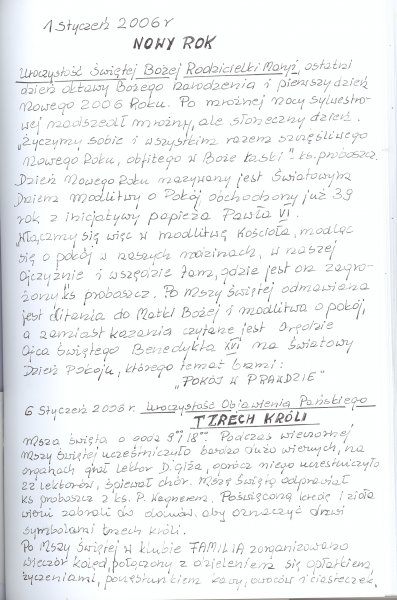 1 Styczeń 2006 r
NOWY ROK
Uroczystość Świętej Bożej Rodzicielki Maryi, ostatni
dzień oktawy Bożego Narodzenia i pierwszy dzień
Nowego 2006 Roku. Po mroźnej nocy Sylwestro-
wej nadszedł mroźny, ale słoneczny dzień.
"Życzymy sobie i wszystkim razem szczęśliwego
Nowego Roku, obfitego w Boże łaski" - ks. proboszcz.
Dzień Nowego Roku nazywany jest Światowym
Dniem Modlitwy o Pokój obchodzony już 39
rok z inicjatywy papieża Pawła VI.
Włączmy się więc w modlitwę Kościoła, modląc
się o pokój w naszych rodzinach, w naszej
Ojczyźnie i wszędzie tam, gdzie jest on zagro-
żony" ks proboszcz. Po Mszy świętej odmawiana
jest Litania do Matki Bożej i modlitwa o pokój,
a zamiast kazania czytane jest Orędzie
Ojca Świętego Benedykta XVI na Światowy
Dzień Pokoju, którego temat brzmi:
"POKÓJ W PRAWDZIE"
6 Styczeń 2006 r. Uroczystość Objawienia Pańskiego
TRZECH KRÓLI
Msza święta o godz 9°° i 18°°. Podczas wieczornej
Mszy świętej uczestniczyło bardzo dużo wiernych, na
organach grał lektor D. Giża, oprócz niego uczestniczyło
22 lektorów, śpiewał chór. Mszę świętą odprawiał
ks proboszcz z ks. P. Wagnerem. Poświęconą kredę i zioła
wierni zabrali do domów, aby oznaczyć drzwi
symbolami trzech króli.
Po Mszy świętej w klubie FAMILIA zorganizowano
wieczór kolęd, połączony z dzieleniem się opłatkiem,
życzeniami, poczęstunkiem kawy, owoców i ciasteczek.